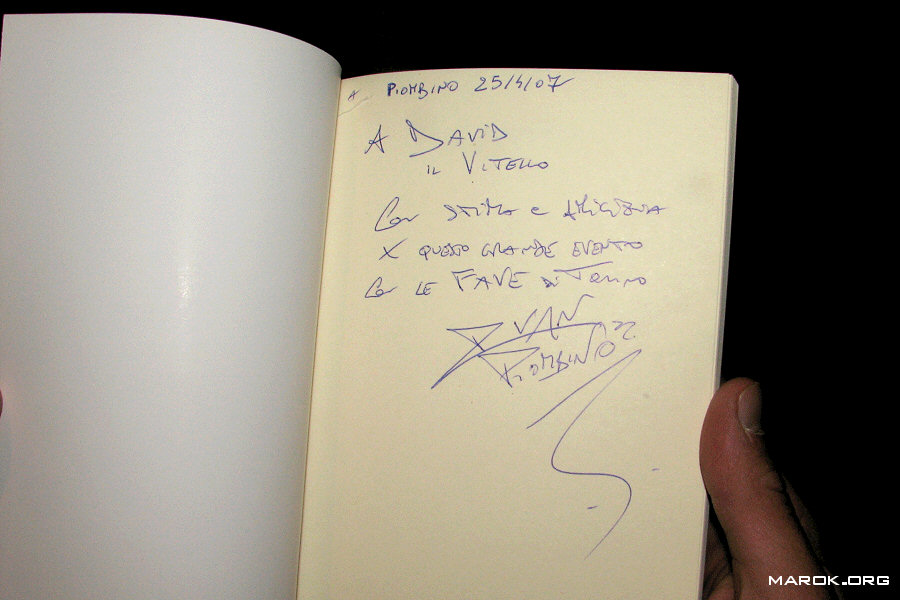 Piombino 25/4/07
A David
il Vitello
Con stima e amicizia
X questo grande evento
Con le FAVE di Torino
IVAN
Piombino
MAROK.ORG